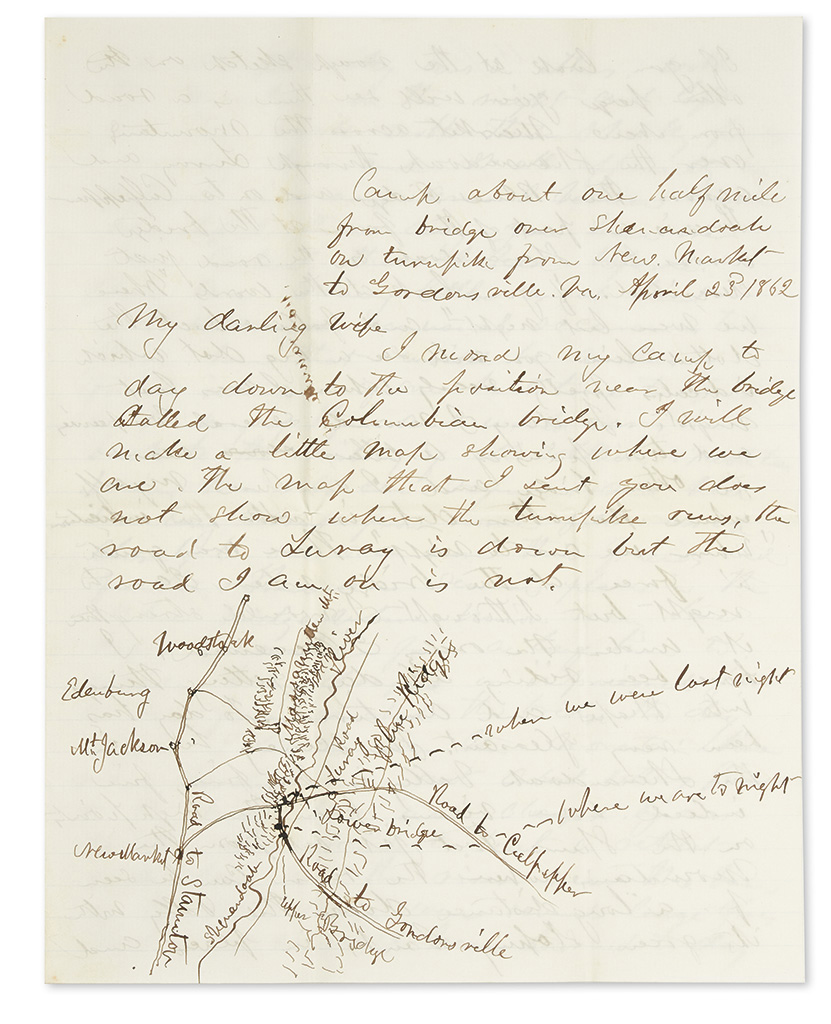 Camp about one half mile
from bridge over Shenandoah
on turnpike from New Market
to Gordonsville. Va. April 23d 1862
My darling Wife
I moved my camp to
day down to the position near the bridge
called the Columbian bridge. I will
make a little map showing where we
are. The map that I sent you does
not show where the turnpike runs, the
road to Luray is down but the
road I am on is not.
Woodstock
Edenburg
Mt Jackson
New Market
Road to Staunton
Shenandoah
River
Luray Road
Blue Ridge
where we were last night
where we are to night
Road to Culpepper
Lower bridge
Road to Gordonsville
upper Bridge